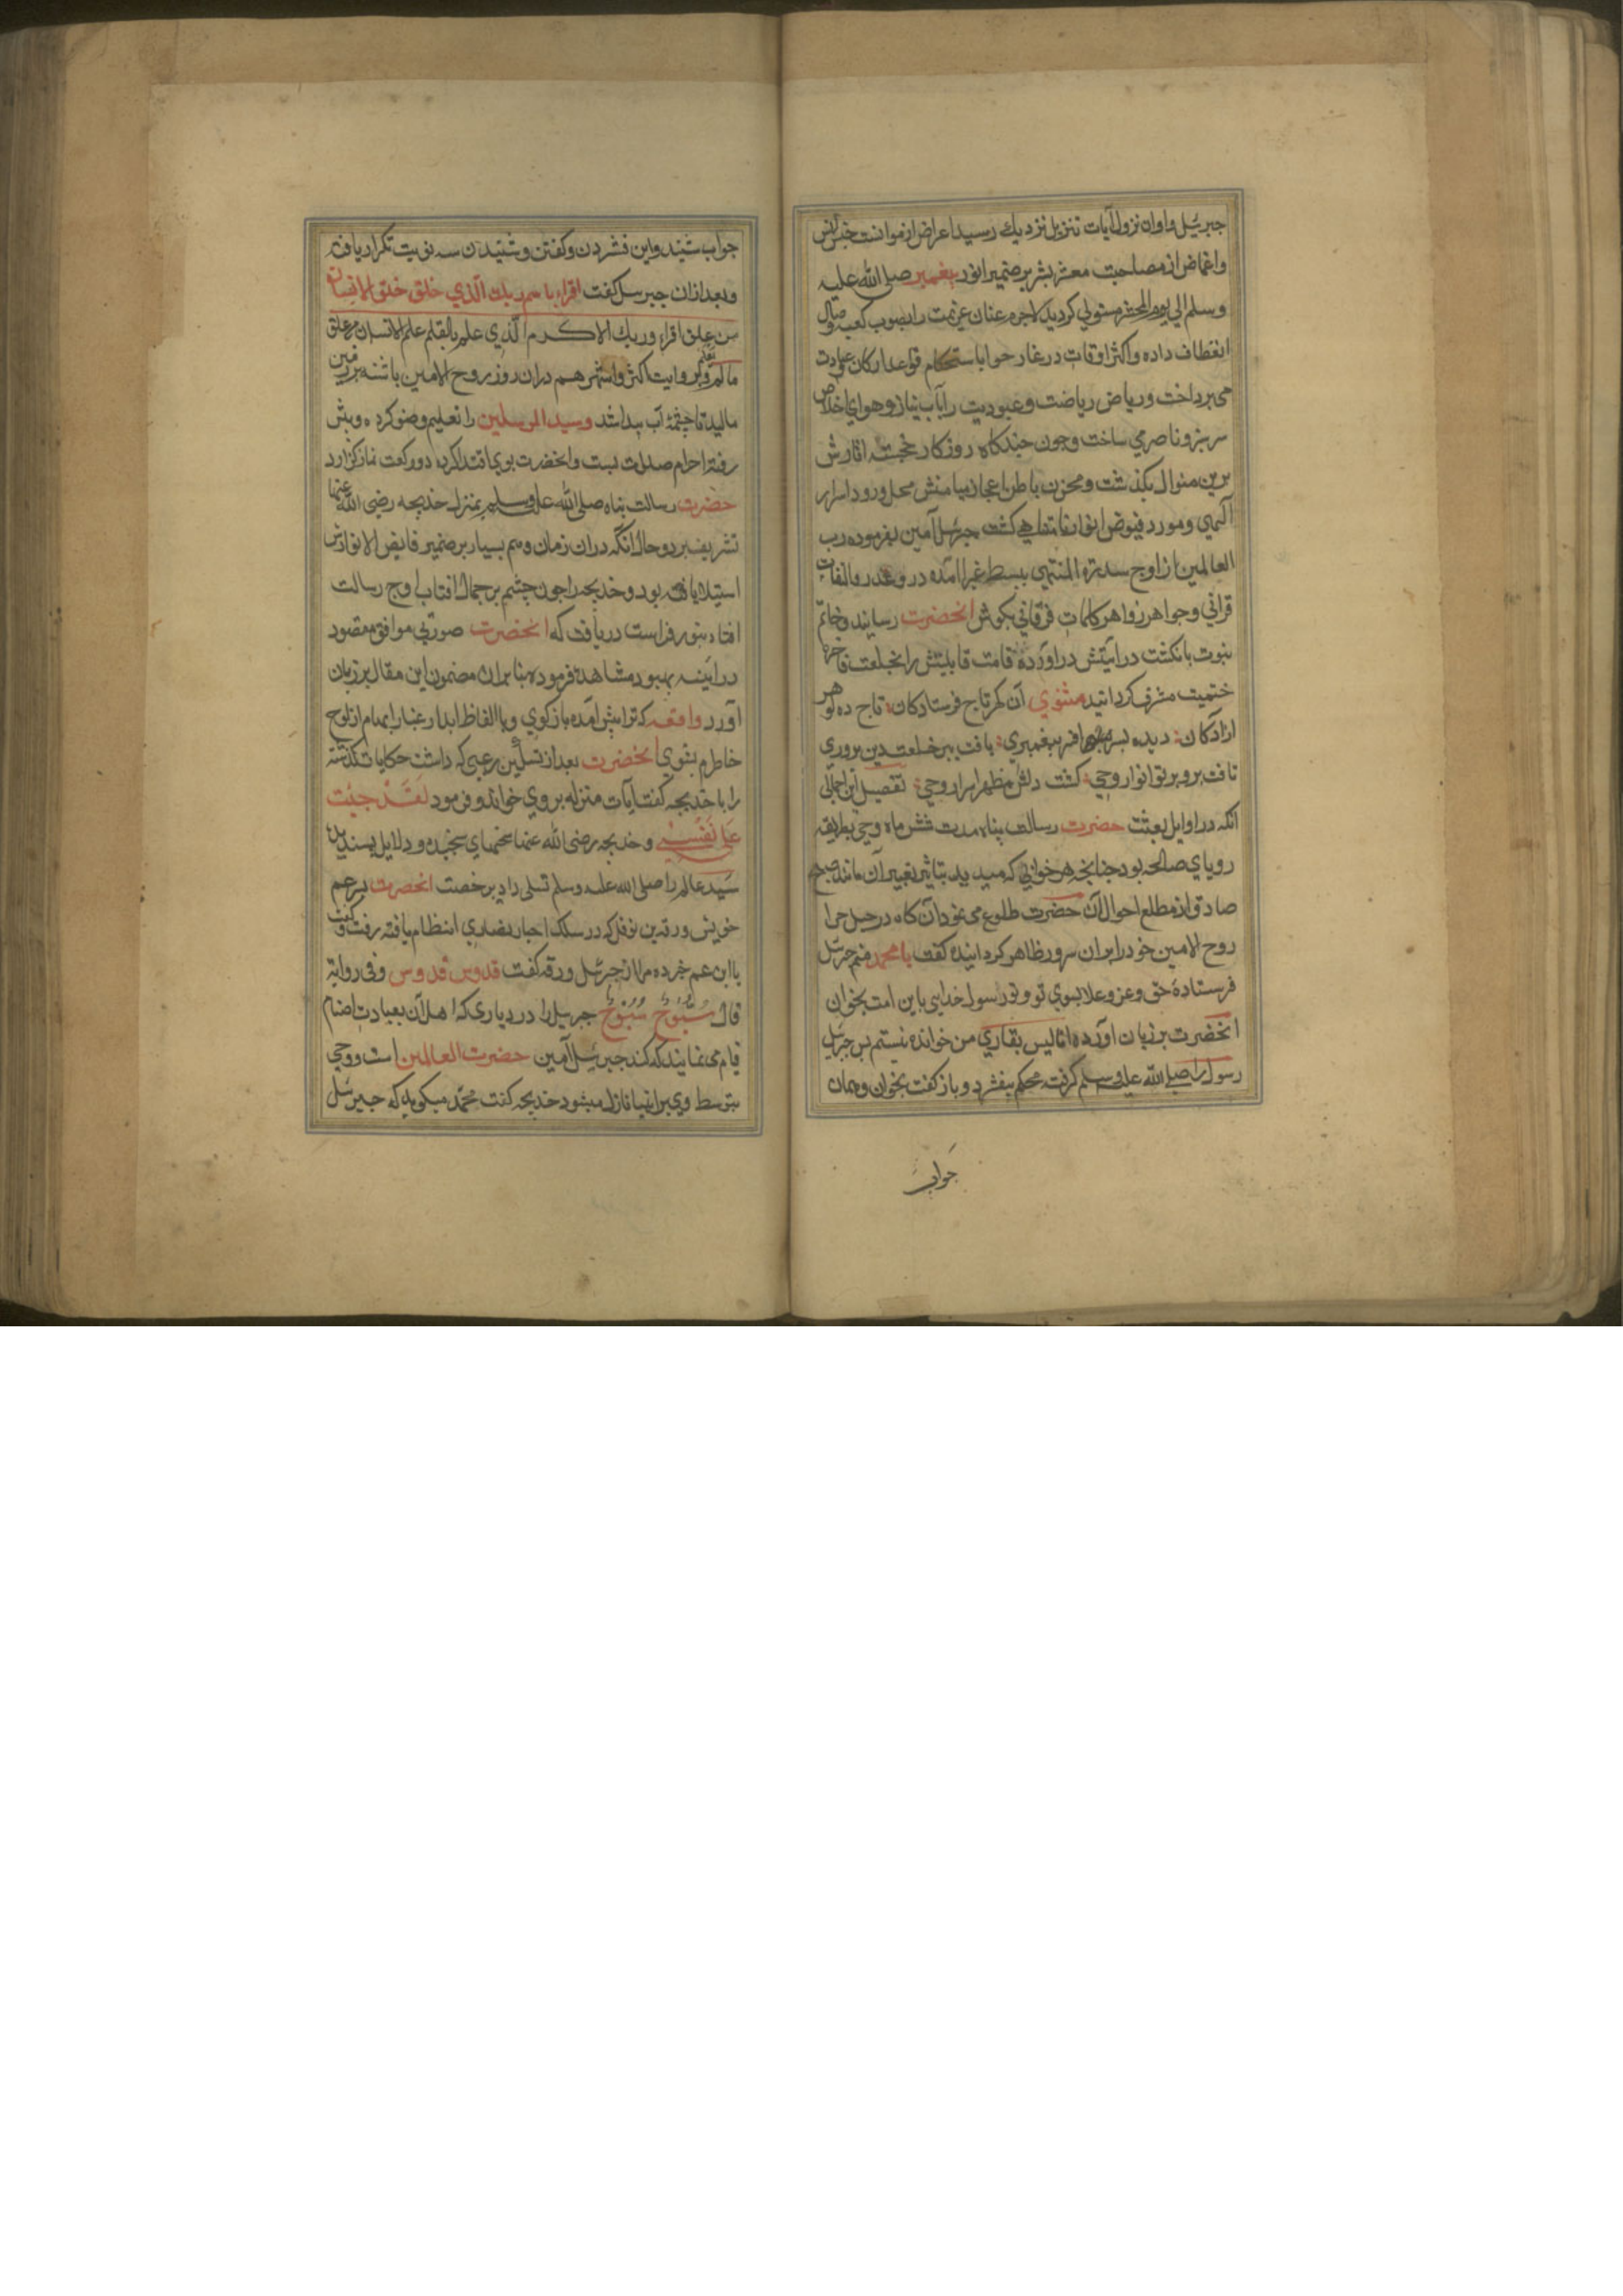 جبرئیل و اوان نزول آیات تنزیل نزدیك رسید اعراض از موانست جنس انس
واغماض از مصاحبت معشر بشر بر ضمیر انور پیغمبر صلی الله علیه
وسلم الی یوم المحشر مستولی کردید لاجرم عنان عزیمت را بصوب کعبه وصال
انعطاف داده واکثر اوقات در غار حرا باستحکام قواعد ارکان عبادت
می پرداخت وریاض ریاضت وعبودیت را بآب نیاز وهوای اخلاص
سرسبز و ناضر می ساخت وچون چندکاه روزکار خجسته آثارش
برین منوال بکذشت ومخزن باطن اعجاز میامنش محل ورود اسرار
آلهی ومورد فیوض انوار نامتناهی کشت جبرئیل آمین بفرموده رب
العالمین از اوج سدرة المنتهی ببسط غبرا آمده درو غدر والفات
قرآنی وجواهر زواهر کلمات فرقانی بکوش انحضرت رسانید وخاتم
نبوت بانکشت درایتش دراورده قامت قابلیتش را بخلعت فاخره
ختمیت مشرف کردانید مثنوی آن کهر تاج فرستادکان تاج ده کوهر
ازادکان دیده بسر افسر پیغمبری یافت ببر خلعت دین پروری
تافت برو پرتو انوار وحی کشت دلش مظهر اسرار وحی تفصیل این اجمال
انکه در اوایل بعثت حضرت رسالت پناه مدت شش ماه وحی بطریقه
رویای صالحه بود چنانچه هر خوابی که میدید بتاثیر تعبیر آن مانند صبح
صادق از مطلع احوال آن حضرت طلوع می نمود آن کاه در جبل حرا
روح الامین خود را بران سرور ظاهر کردانیده کفت یا محمد منم جبرئیل
فرستادهٔ حق وعز وعلا بسوی تو وتو رسول خدایی باین امت بخوان
انحضرت بر زبان اورده انا لیس بقاری من خوانده نیستم پس جبرئیل
رسول را صلی الله علیه وسلم کرفته محکم بیفشرد وباز کفت بخوان وهمان
جواب
جواب شنید واین فشردن وکفتن وشنیدن سه نوبت تکرار یافته
وبعد ازان جبرئیل کفت اقراء باسم ربك الذی خلق خلق الانسان
من علق اقراء وربك الاکرم الذی علم بالقلم علم الانسان
مالم یعلم وبروایت اکثر واشهر هم دران روز روح الامین پاشنه بر زمین
مالید تا چشمهٔ آب پیدا شد وسید المرسلین را تعلیم وضو کرده وپیش
رفته احرام صلات بست وانحضرت بوی اقتدا کرده دو رکعت نماز کزارد
حضرت رسالت پناه صلی الله علیه وسلم بمنزل خدیجه رضی الله عنها
تشریف برد وحال انکه دران زمان وهم بسیار بر ضمیر فایض الانوارش
استیلا یافته بود وخدیجه را چون چشم بر جمال افتاب اوج رسالت
افتاد بنور فراست دریافت که انحضرت صورتی موافق مقصود
در اینه بهبود مشاهده فرموده بنا بران مضمون این مقال بر زبان
آورد واقعه که ترا پیش آمده باز کوی وبا الفاظ ابدار غبار ابهام از لوح
خاطرم بشوی انحضرت بعد از تسکین رعبی که داشت حکایات کذشته
را با خدیجه کفت آیات منزله بروی خواند وفرمود لقد خشیت
علی نفسی وخدیجه رضی الله عنها سخنهای سنجیده ودلایل پسندیده
سید عالم را صلی الله علیه وسلم تسلی داد برخصت انحضرت پسر عم
خویش ورقه بن نوفل که در سلک احبار نصاری انتظام یافته رفت وکفت
یا ابن عم خبر ده مرا از جبرئیل ورقه کفت قدوس قدوس وفی روایة
قال سُبُّوحٌ سُبُّوحٌ جبرئیل را در دیاری که اهل آن بعبادت اصنام
قیام می نمایند که کند جبرئیل آمین حضرت العالمین است ووحی
بتوسط وی بر انبیا نازل میشود خدیجه کفت محمد میکوید که جبرئیل